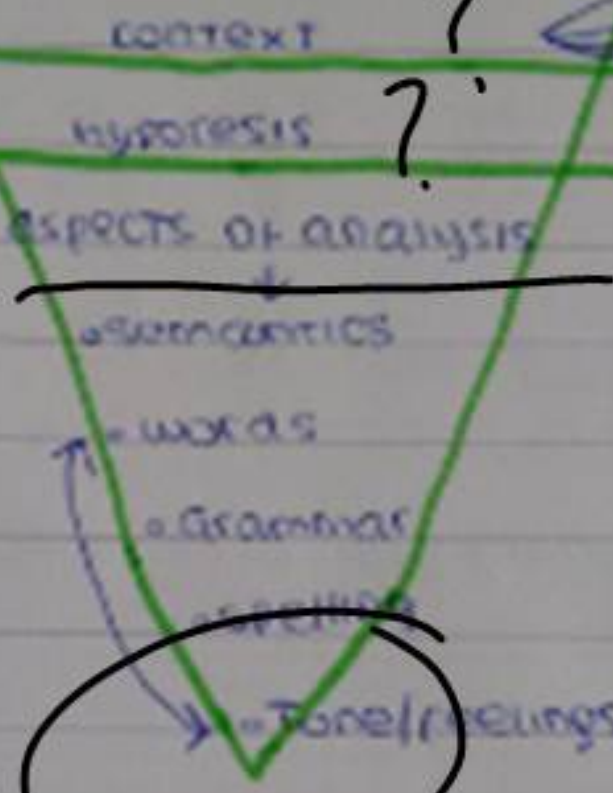 context ?
hypotesis ?
aspects of analysis
semantics
words
Grammar
spelling
Tone/feelings